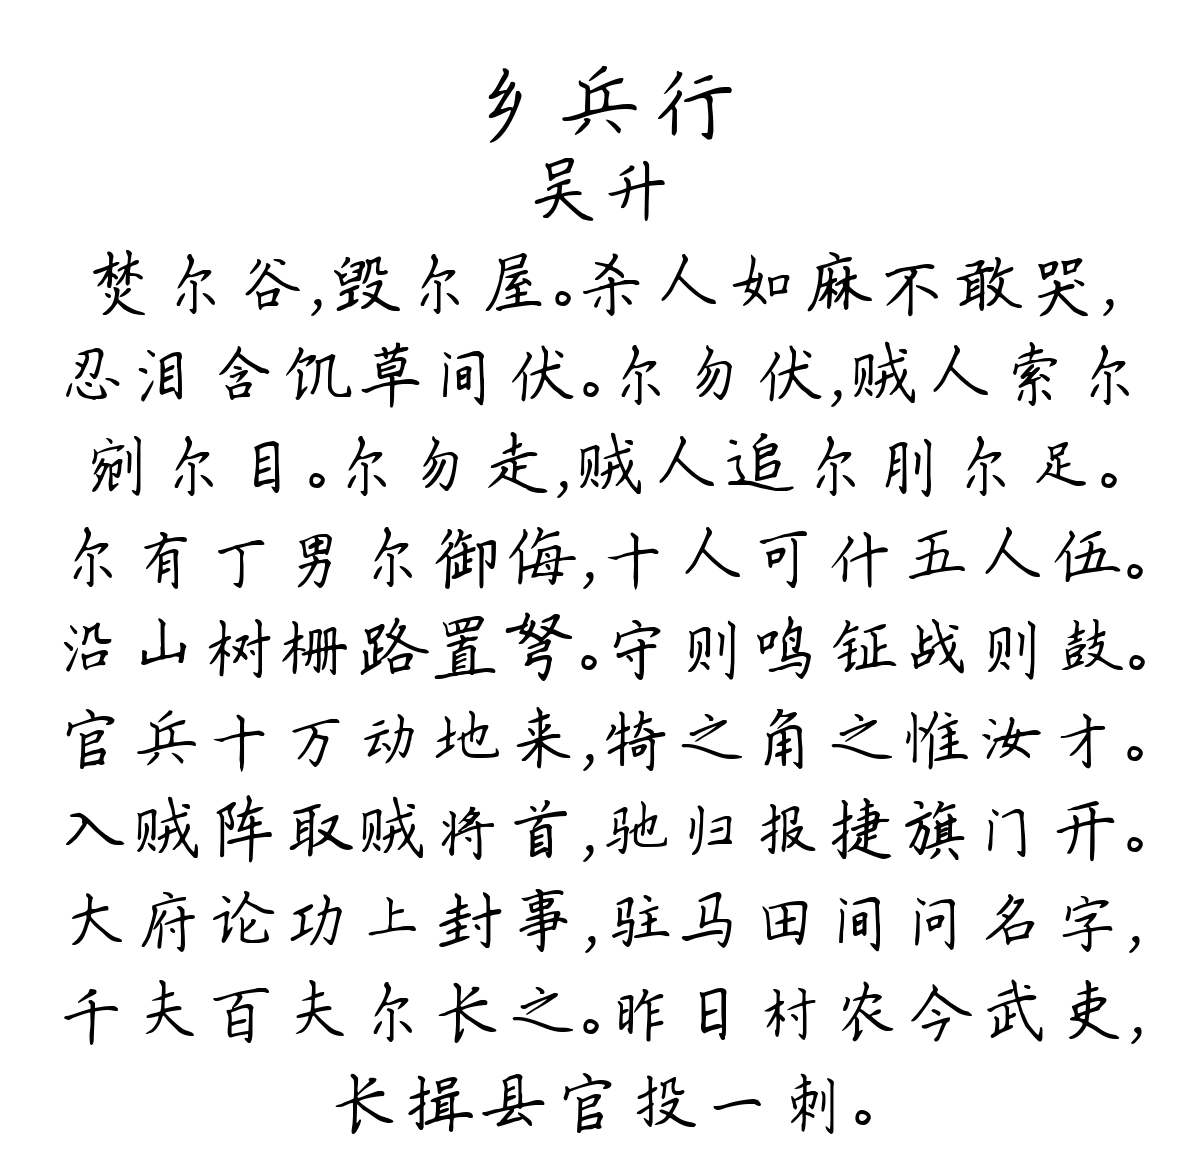 乡兵行
吴升
焚尔谷,毁尔屋。杀人如麻不敢哭,
忍泪含饥草间伏。尔勿伏,贼人索尔
剜尔目。尔勿走,贼人追尔刖尔足。
尔有丁男尔御侮,十人可什五人伍。
沿山树栅路置弩。守则鸣钲战则鼓。
官兵十万动地来,犄之角之惟汝才。
入贼阵取贼将首,驰归报捷旗门开。
大府论功上封事,驻马田间问名字,
千夫百夫尔长之。昨日村农今武吏,
长揖县官投一刺。